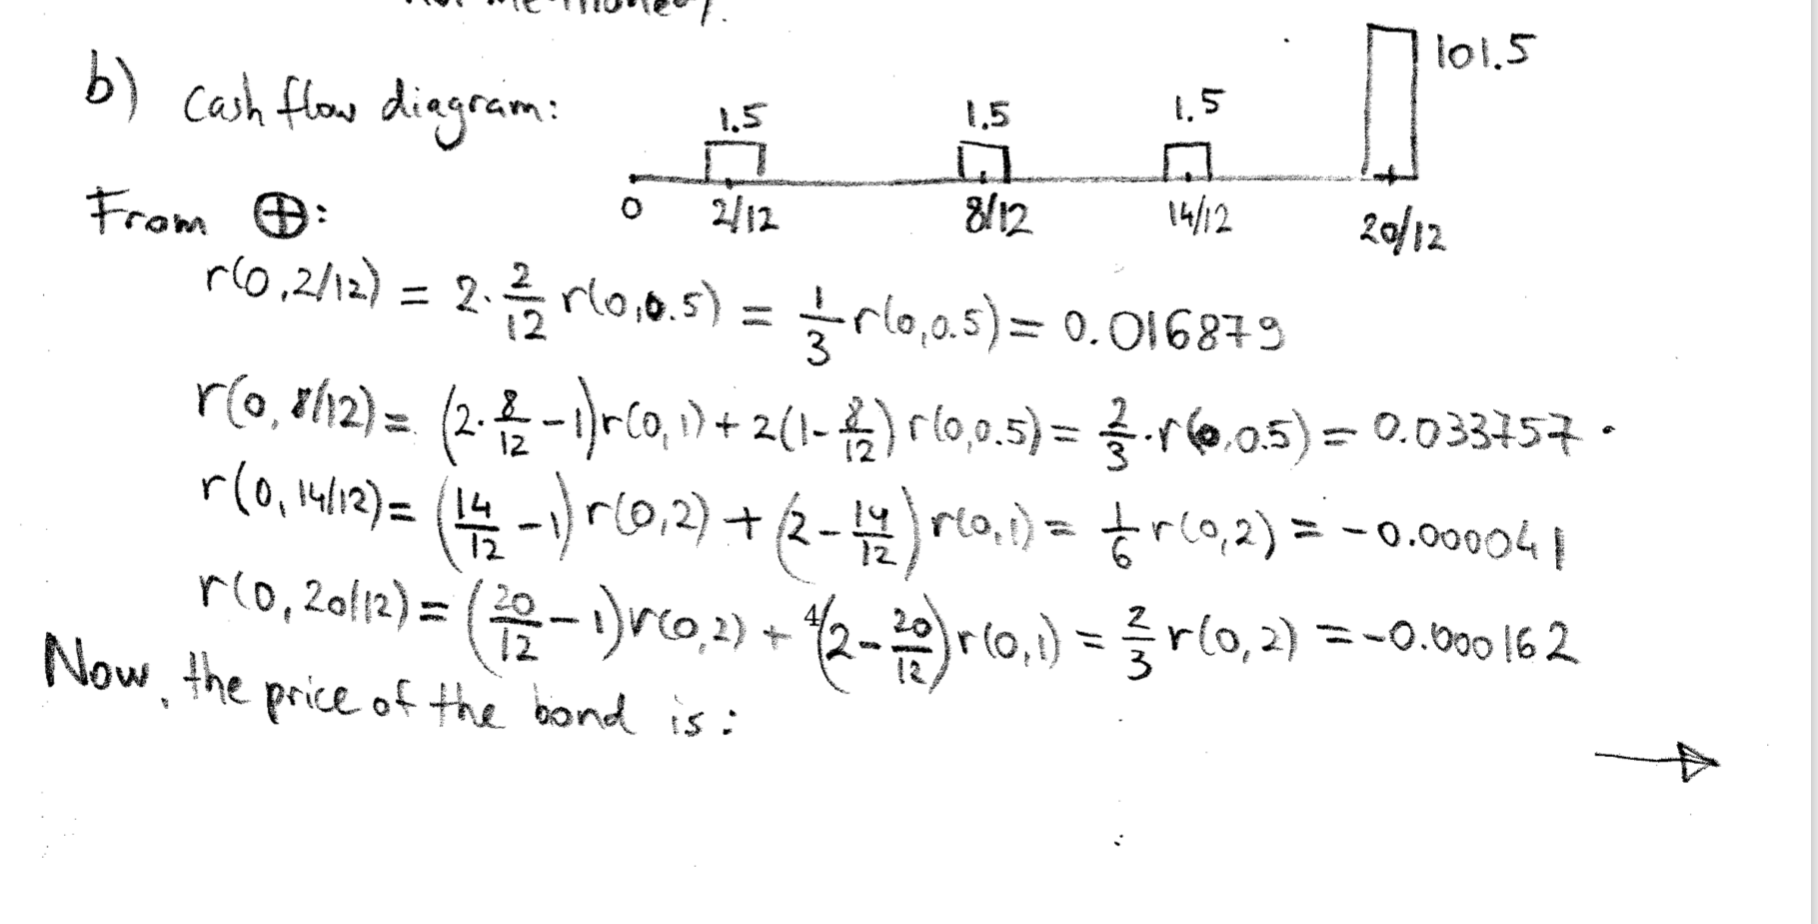 b) Cash flow diagram:
1.5 1.5 1.5 101.5
0 2/12 8/12 14/12 20/12
From ⊕:
r(0,2/12) = 2·2/12 r(0,0.5) = 1/3 r(0,0.5) = 0.016879
r(0,8/12) = (2·8/12 -1)r(0,1) + 2(1-8/12) r(0,0.5) = 2/3·r(0,0.5) = 0.033757.
r(0,14/12) = (14/12 -1) r(0,2) + (2-14/12) r(0,1) = 1/6 r(0,2) = -0.000041
r(0,20/12) = (20/12 -1)r(0,2) + (2-20/12)r(0,1) = 2/3 r(0,2) = -0.000162
4
Now, the price of the bond is:
→